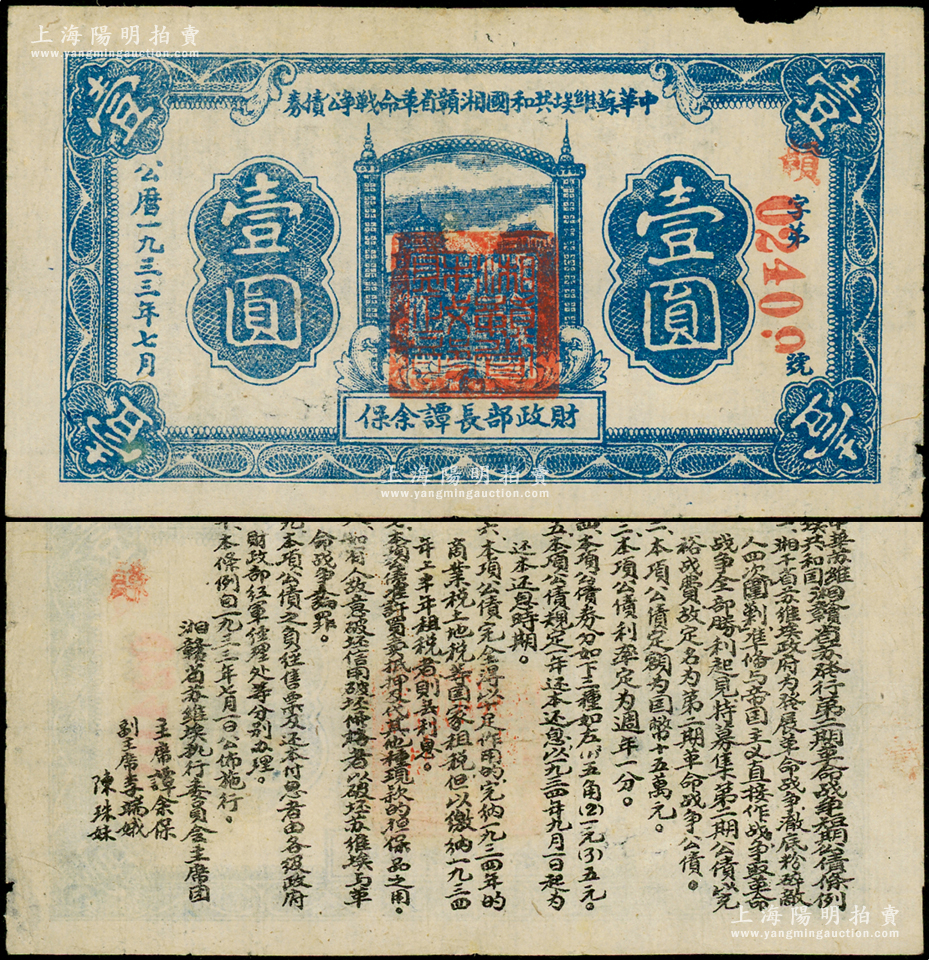 上海陽明拍賣
www.yangmingauction.com
中華蘇維埃共和國湘贛省革命戰爭公債券
壹
壹
壹
壹
公曆一九三三年七月
壹圓
壹圓
贛
字第
02400
號
財政部長譚余保
上海陽明拍賣
www.yangmingauction.com
埃共和国湘赣省苏发行第二期革命战争公債條例
湘干省苏维埃政府为發展革命战争敵底粉碎敵
人四次圍剿准俻与帝国主义直接作战争取革命
战争全部勝利起見持募集第二期公債以充
裕战費故定名为第二期革命战争公債。
二、本項公債定額为囯幣十五萬元。
三、本項公債利率定为週年一分。
四、本項公債券分如下三種如左(1)五角(2)一元(3)五元。
五、本項公債規定一年还本还息以一九三四年九月一日起为
还本还息時期。
六、本項公債完全得以十足作用的完納一九三四年的
商業税土地税等囯家租税但以繳納一九三四
年上半年租税者則无利息。
本項公債准許買賣抵押及代其他種現款的担保品之用。
如有人故意破坏信用破坏價格者以破坏苏维埃与革
命战争論罪。
九、本項公債之負往售票及还本付息者由各级政府
財政部红軍经理处等分别办理。
十、本條例自一九三三年七月一日公佈施行。
湘赣省苏维埃执行委員会主席团
主席譚余保
副主席李端娥
陳珠妹
上海陽明拍賣
www.yangmingauction.com